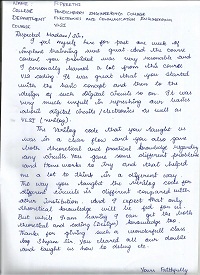 NAME : PREETHI
COLLEGE : PONDICHERRY ENGINEERING COLLEGE
DEPARTMENT : ELECTRONICS AND COMMUNICATION ENGINEERING
COURSE : VLSI
Respected Madam/Sir,
I feel myself fun for past one week of
inplant training and great. And the course
content you provided was very reasonable and
I personally gained a lot from this course
VLSI coding. It was great that you started
with the basic concept and then to the
design of such digital circuits so on. It was
very much useful in refreshing our basics
about digital circuits/electronics as well as
VLSI (verilog).
The Verilog code that you taught us
was in a clear flow and you also gave
both theoretical and practical knowledge regarding
any circuits. You gave some different problems
and home works to try and that helped
me a lot to think in a different way.
The way you taught the Verilog code for
different circuits is different compared with
other institution. And I expect that only
theoretical knowledge will be fed for us.
But while I am leaving I can get the both
theoretical and coding (verilog) knowledge too.
Thanks for giving such a wonderful class
Sir you cleared all our doubts
and taught us how to debug etc.
Yours Faithfully